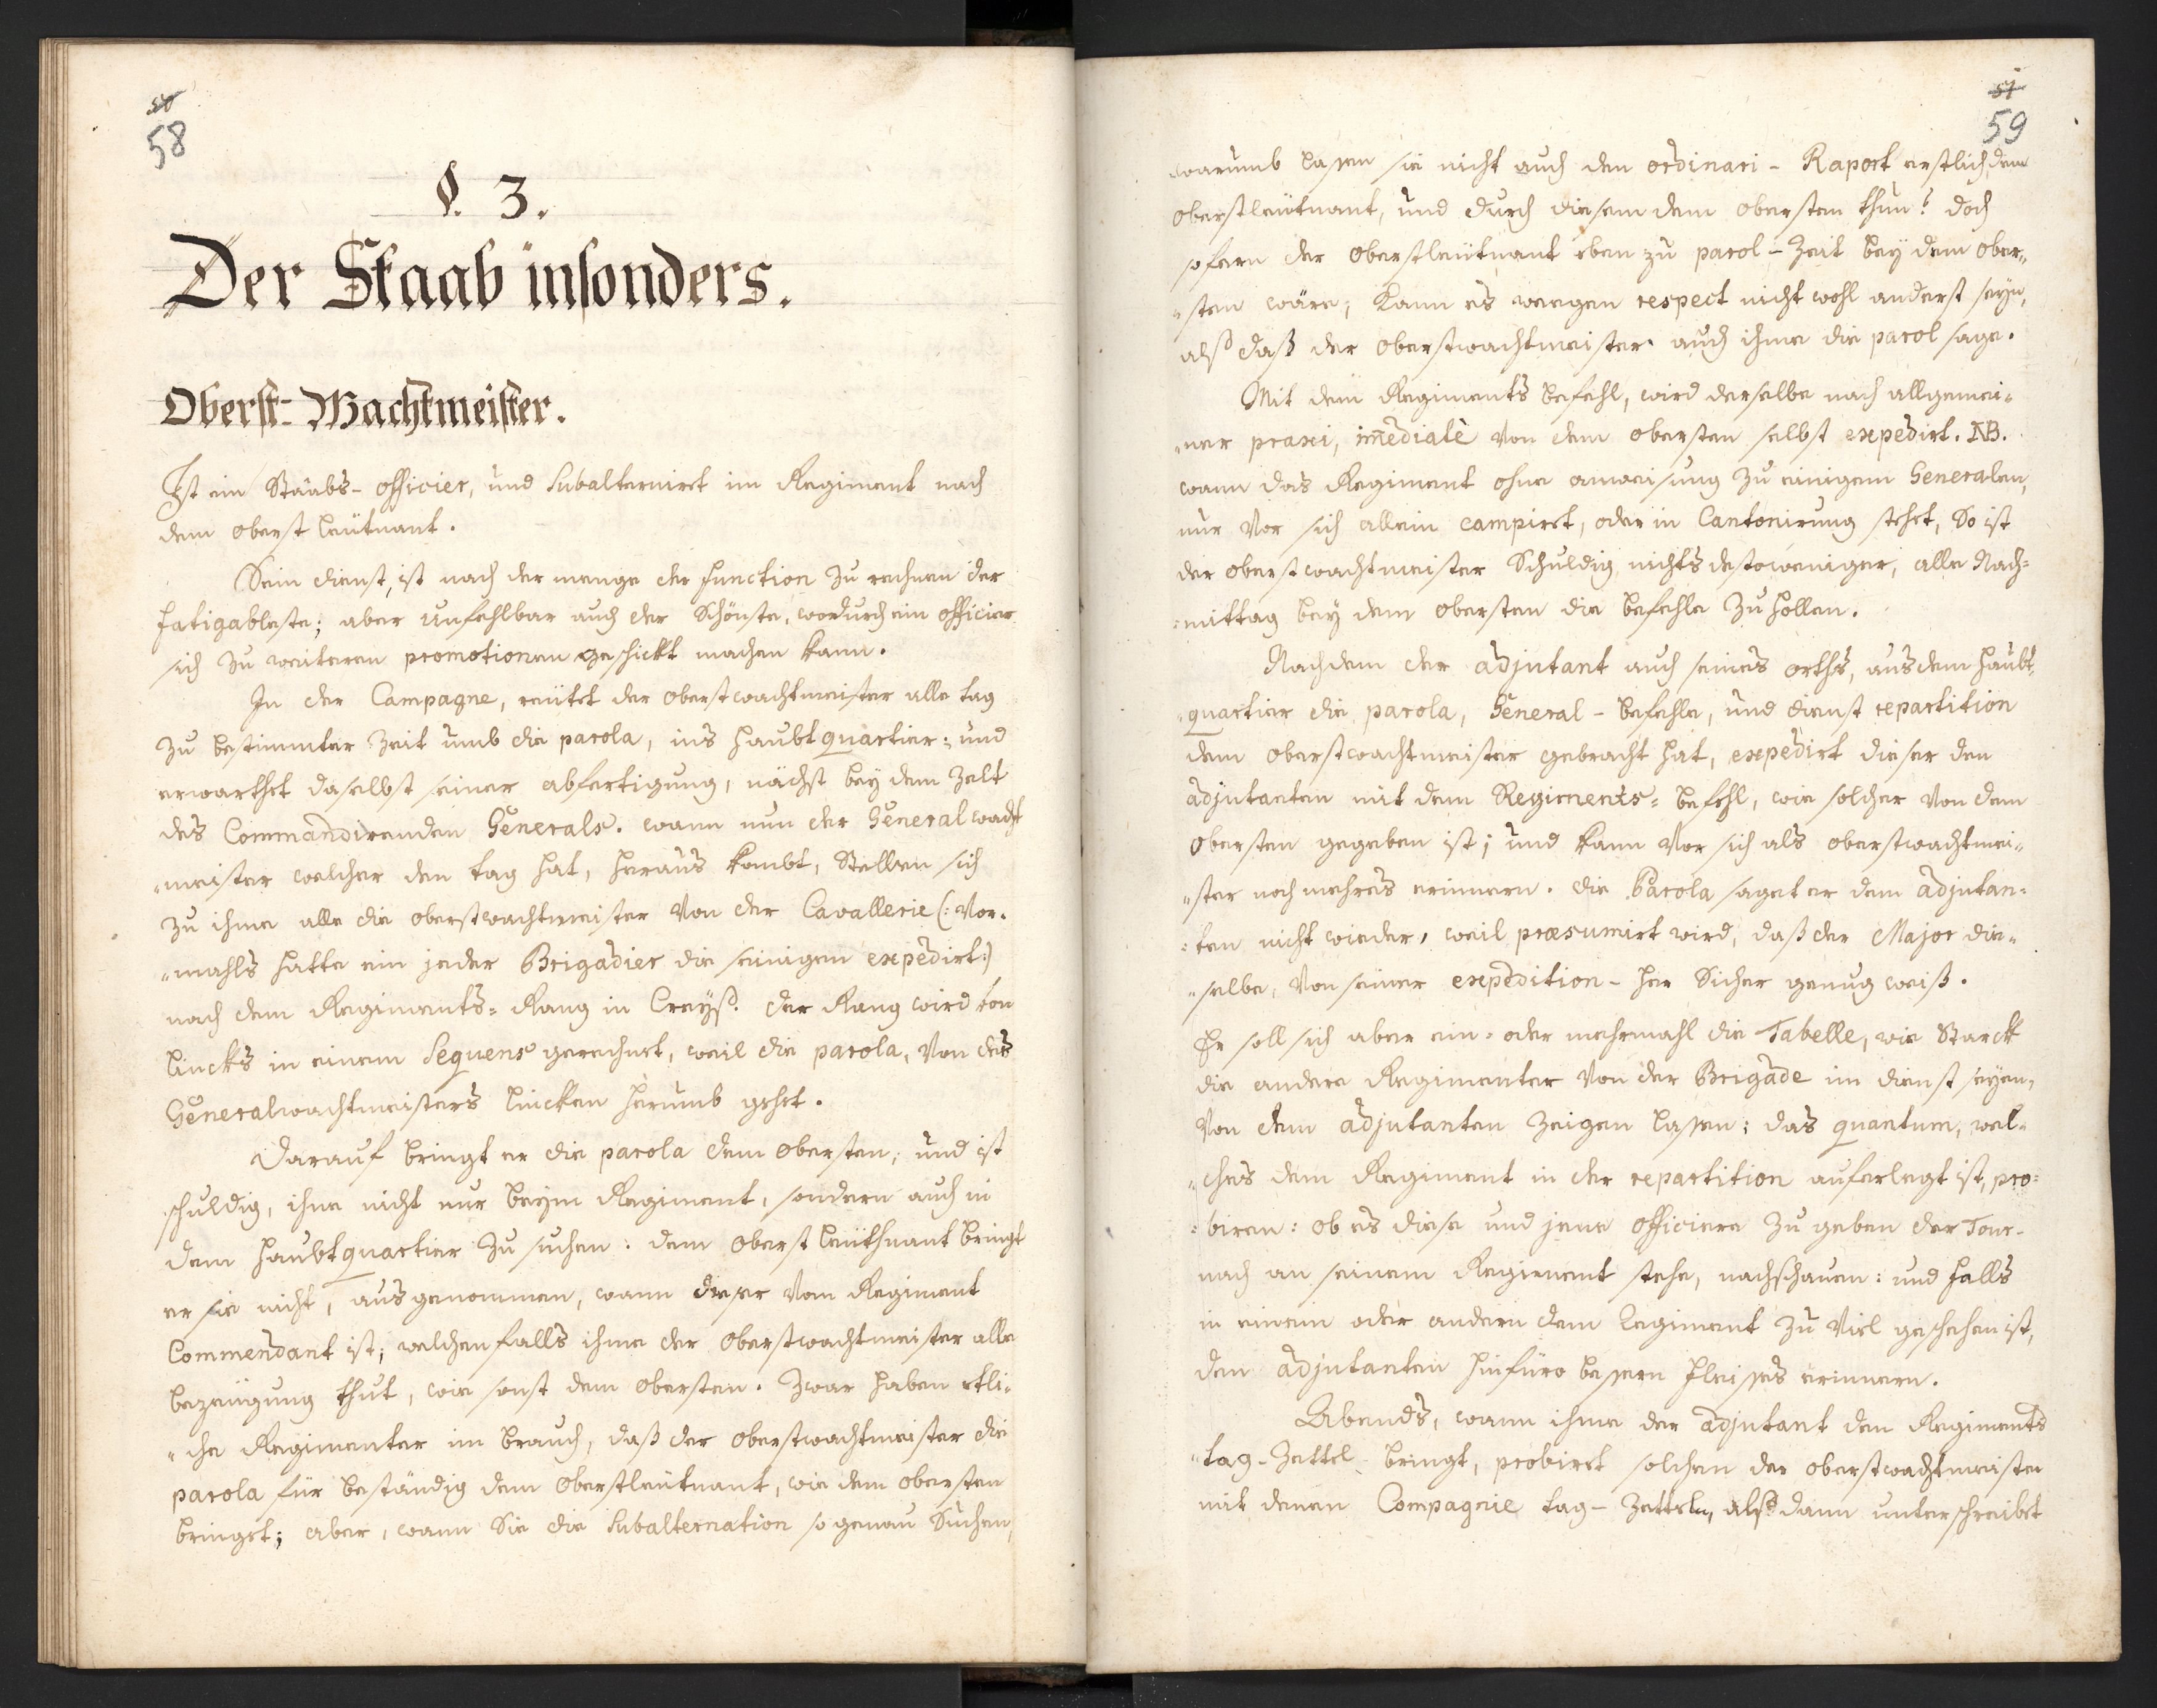 50
58
§. 3.
Der Staab insonders.
Oberst-Wachtmeister.
Ist ein Staabs-officier, und Subalternirt im Regiment nach
dem oberst leutnant.
Sein dienst, ist nach der menge der function zu rechnen der
fatigableste; aber unfehlbar auch der Schönste, wordurch ein officier
sich zu weiteren promotionen geschickt machen kann.
In der Campagne, reütet der oberstwachtmeister alle tag
zu bestimmter Zeit umb die parola, ins haubtquartier: und
erwarthet daselbst seiner abfertigung, nächst bey dem Zelt
des Commandirenden Generals. wann nun der Generalwacht
"meister welcher den tag hat, heraus kombt, Stellen sich
zu ihme alle die oberstwachtmeister von der Cavallerie (: Vor-
"mahls hatte ein jeder Brigadier die seinigen expedirt:)
nach dem Regiments-Rang in Creyß. der Rang wird von
lincks in einem Sequens gerechnet, weil die parola, von des
Generalwachtmeisters lincken herumb gehet.
Darauf bringt er die parola dem obersten; und ist
schuldig, ihne nicht nur beym Regiment, sondern auch in
dem haubtquartier zu suchen: dem oberst leuthnant bringt
er sie nicht, ausgenommen, wann dieser vom Regiment
Commendant ist; welchenfalls ihme der oberstwachtmeister alle
bezeügung thut, wie sonst dem obersten. Zwar haben etli-
"che Regimenter im brauch, daß der oberstwachtmeister die
parola für beständig dem oberstleutnant, wie dem obersten
bringet; aber, wann Sie die Subalternation so genau Suchen,
51
59
warumb lassen sie nicht auch den ordinari-Raport erstlich dem
oberstleutnant, und durch diesem dem obersten thun? doch
sofern der oberstleutnant eben zu parol-Zeit bey dem ober-
"sten wäre; kann es weegen respect nicht wohl anderst seyn,
alß daß der oberstwachtmeister auch ihme die parol sage.
Mit dem Regiments befehl, wird derselbe nach allgemei-
"ner praxi, im̃ediatè von dem obersten selbst expedirt. NB.
wann das Regiment ohne anweisung zu einigem Generalen,
nur vor sich allein campiret, oder in Cantonirung stehet, So ist
der oberstwachtmeister Schuldig nichts destoweniger, alle Nach-
"mittag bey dem obersten die befehle zu hollen.
Nachdem der adjutant auch seines orths, aus dem haubt-
"quartier die parola, General-befehle, und dienst repartition
dem oberstwachtmeister gebracht hat, expedirt dieser den
adjutanten mit dem Regiments-befehl, wie solcher von dem
obersten gegeben ist; und kann vor sich als oberstwachtmei-
"ster noch mehres erinnern. die Parola saget er dem adjutan-
"ten nicht wieder, weil præsumirt wird, daß der Major die-
"selbe, von seiner expedition-her Sicher genug weiß.
Er soll sich aber ein- oder mehrmahl die Tabelle, wie Starck
die andere Regimenter von der Brigade im dienst seyen,
von dem adjutanten zeigen lassen: das quantum, wel-
"ches dem Regiment in der repartition auferlegt ist, pro-
"biren: ob es diese und jene officiere zu geben der Tour-
nach an seinem Regiment stehe, nachschauen: und falls
in einem oder andern dem Regiment zu viel geschehen ist,
den adjutanten hinfüro bessern fleisses erinnern.
Abends, wann ihme der adjutant den Regiments
"tag-Zettel bringt, probiret solchen der oberstwachtmeister
mit denen Compagnie tag-Zetteln, alßdann unterschreibet